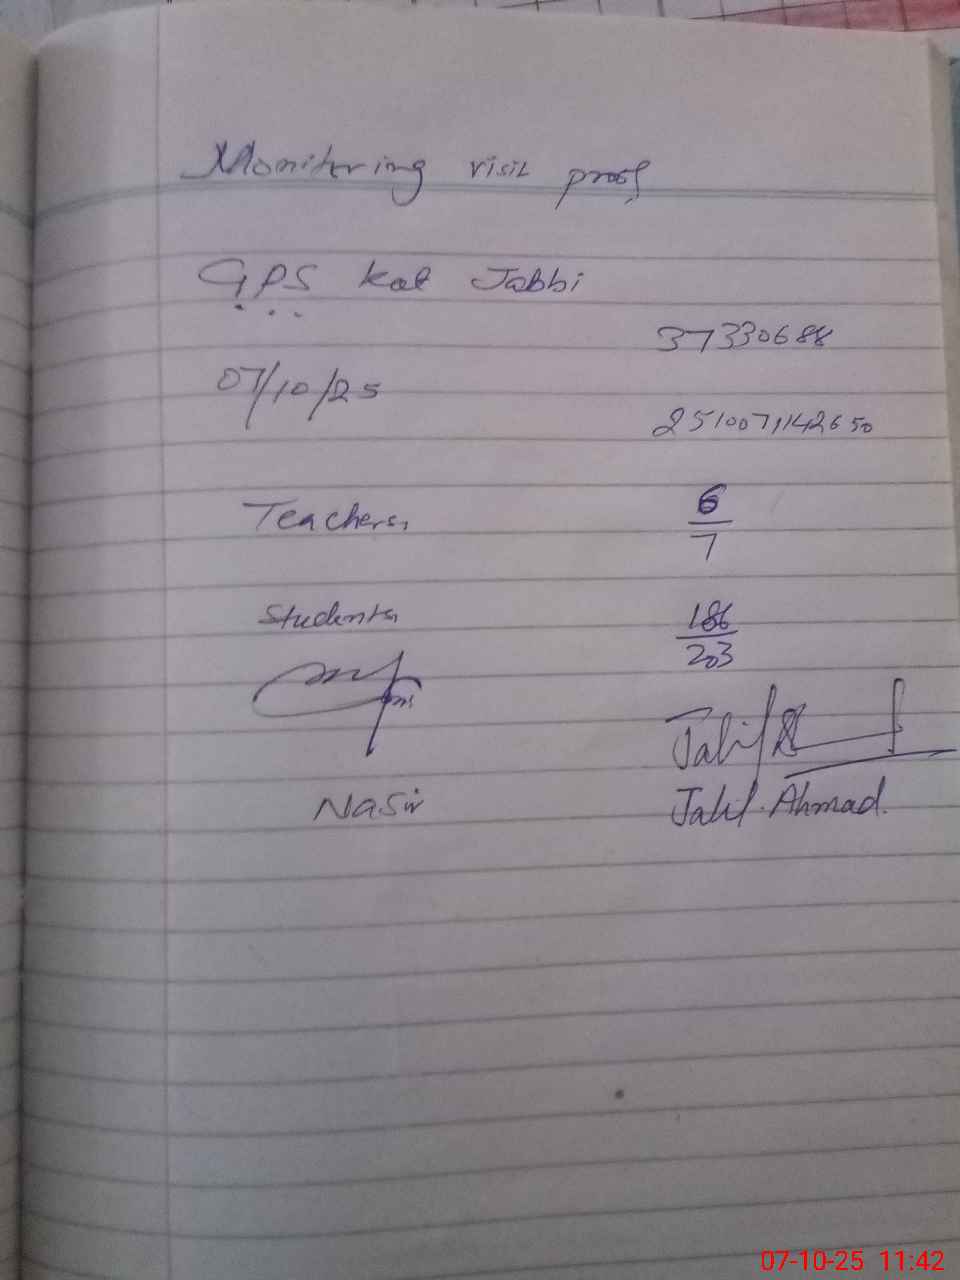 Monitering visit proof
GPS Kot Jabbi
37330688
07/10/25
251007114265 0
Teachers, 6/7
Students, 186/203
Jalil
Nasir Jalil Ahmad.
07-10-25 11:42